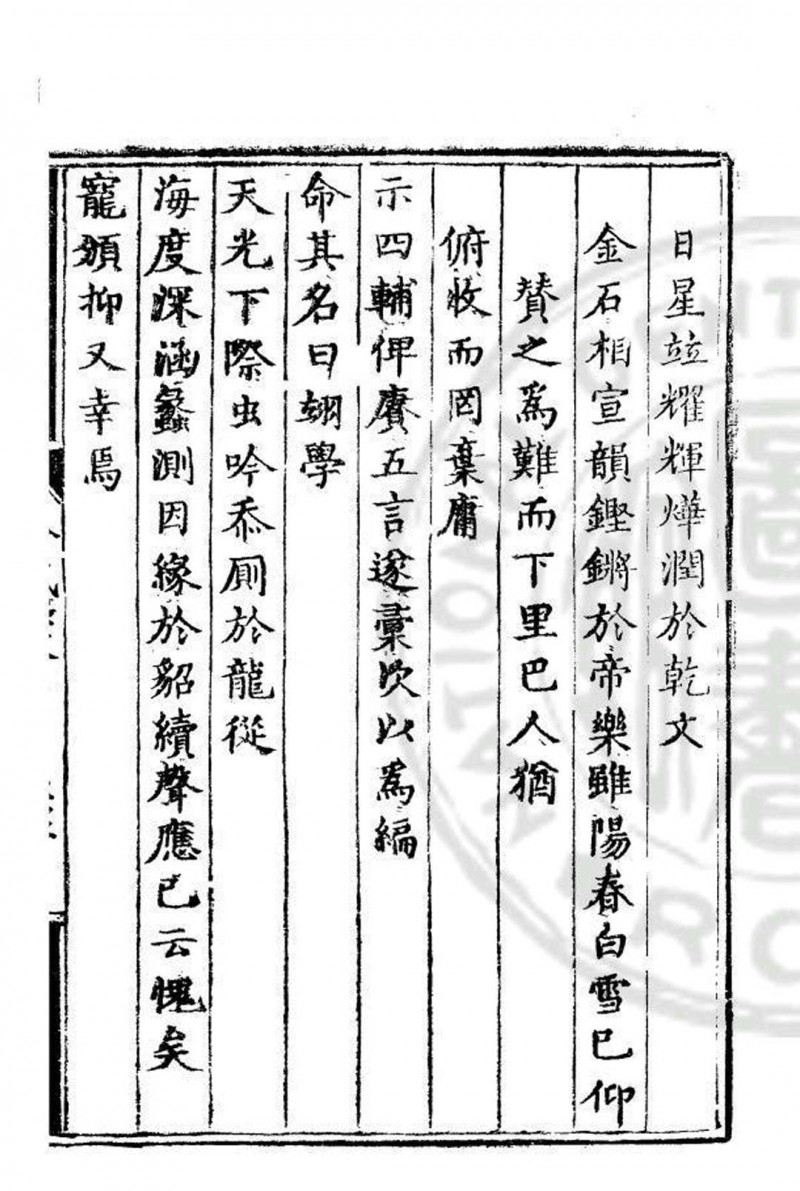 日星竝耀輝燁潤於乾文
金石相宣韻鏗鏘於帝樂雖陽春白雪已仰
贊之爲難而下里巴人猶
俯收而罔棄庸
示四輔俾賡五言遂彙次以爲編
命其名曰翊學
天光下際虫吟忝厠於龍從
海度深涵蠡測因緣於貂續聲應已云愧矣
寵頒抑又幸焉